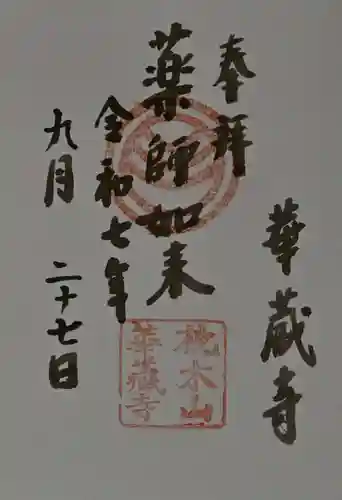 華蔵寺
奉拝
薬師如来
令和七年
九月二十七日
桃木山
華蔵寺